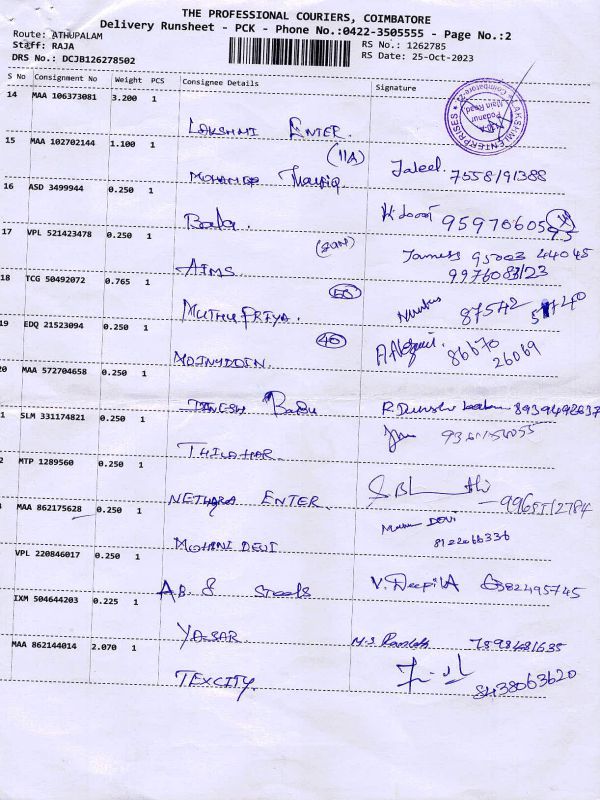 THE PROFESSIONAL COURIERS, COIMBATORE
Delivery Runsheet - PCK - Phone No.:0422-3505555 - Page No.:2
Route: ATHUPALAM
Staff: RAJA
RS No.: 1262785
DRS No.: DCJB126278502
RS Date: 25-Oct-2023
S No Consignment No Weight PCS Consignee Details Signature
14 MAA 106373081 3.200 1
LAKSHMI ENTER.
LAKSHMI ENTERPRISES
Podanur
Main Road
Coimbatore
15 MAA 102702144 1.100 1
(11A)
MOHAMED Jaleel. 7558191388
16 ASD 3499944 0.250 1
Bala. 9597060595
17 VPL 521423478 0.250 1
AIMS. 95003 44045
18 TCG 50492072 0.765 1
MUTHU PRIYA. 87542
19 EDQ 21523094 0.250 1
46
MOINUDDIN. 86670
26069
20 MAA 572704658 0.250 1
Babu 8939492637
1 SLM 331174821 0.250 1
THILAHAR.
2 MTP 1289560 0.250 1
NETHRA ENTER.
3 MAA 862175628 0.250 1
DEVI
MOHANI DEVI
VPL 220846017 0.250 1
A.B. & Steels V. Deepika 6382495745
IXM 504644203 0.225 1
YASAR. M.S.
MAA 862144014 2.070 1
TEXCITY. 8438063620